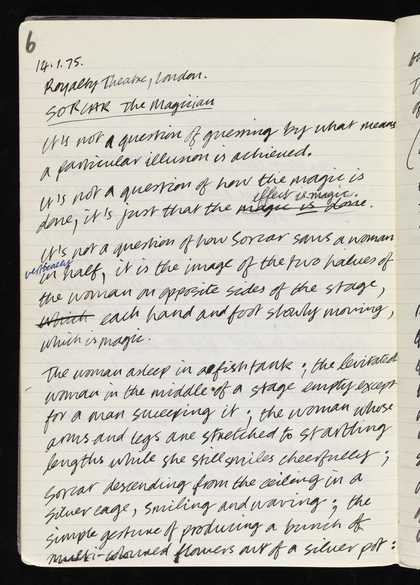 6
14.1.75.
Royalty Theatre, London.
SORCAR The Magician
It's not a question of guessing by what means
a particular illusion is achieved.
It's not a question of how the magic is
effect is magic.
done, it's just that the magic is done.
It's not a question of how Sorcar saws a woman
vertically
in half, it is the image of the two halves of
the woman on opposite sides of the stage,
which each hand and foot slowly moving,
which is magic.
The woman asleep in a fishtank; the levitated
woman in the middle of a stage empty except
for a man sweeping it; the woman whose
arms and legs are stretched to startling
lengths while she still smiles cheerfully;
Sorcar descending from the ceiling in a
silver cage, smiling and waving; the
simple gesture of producing a bunch of
multi-coloured flowers out of a silver pot: